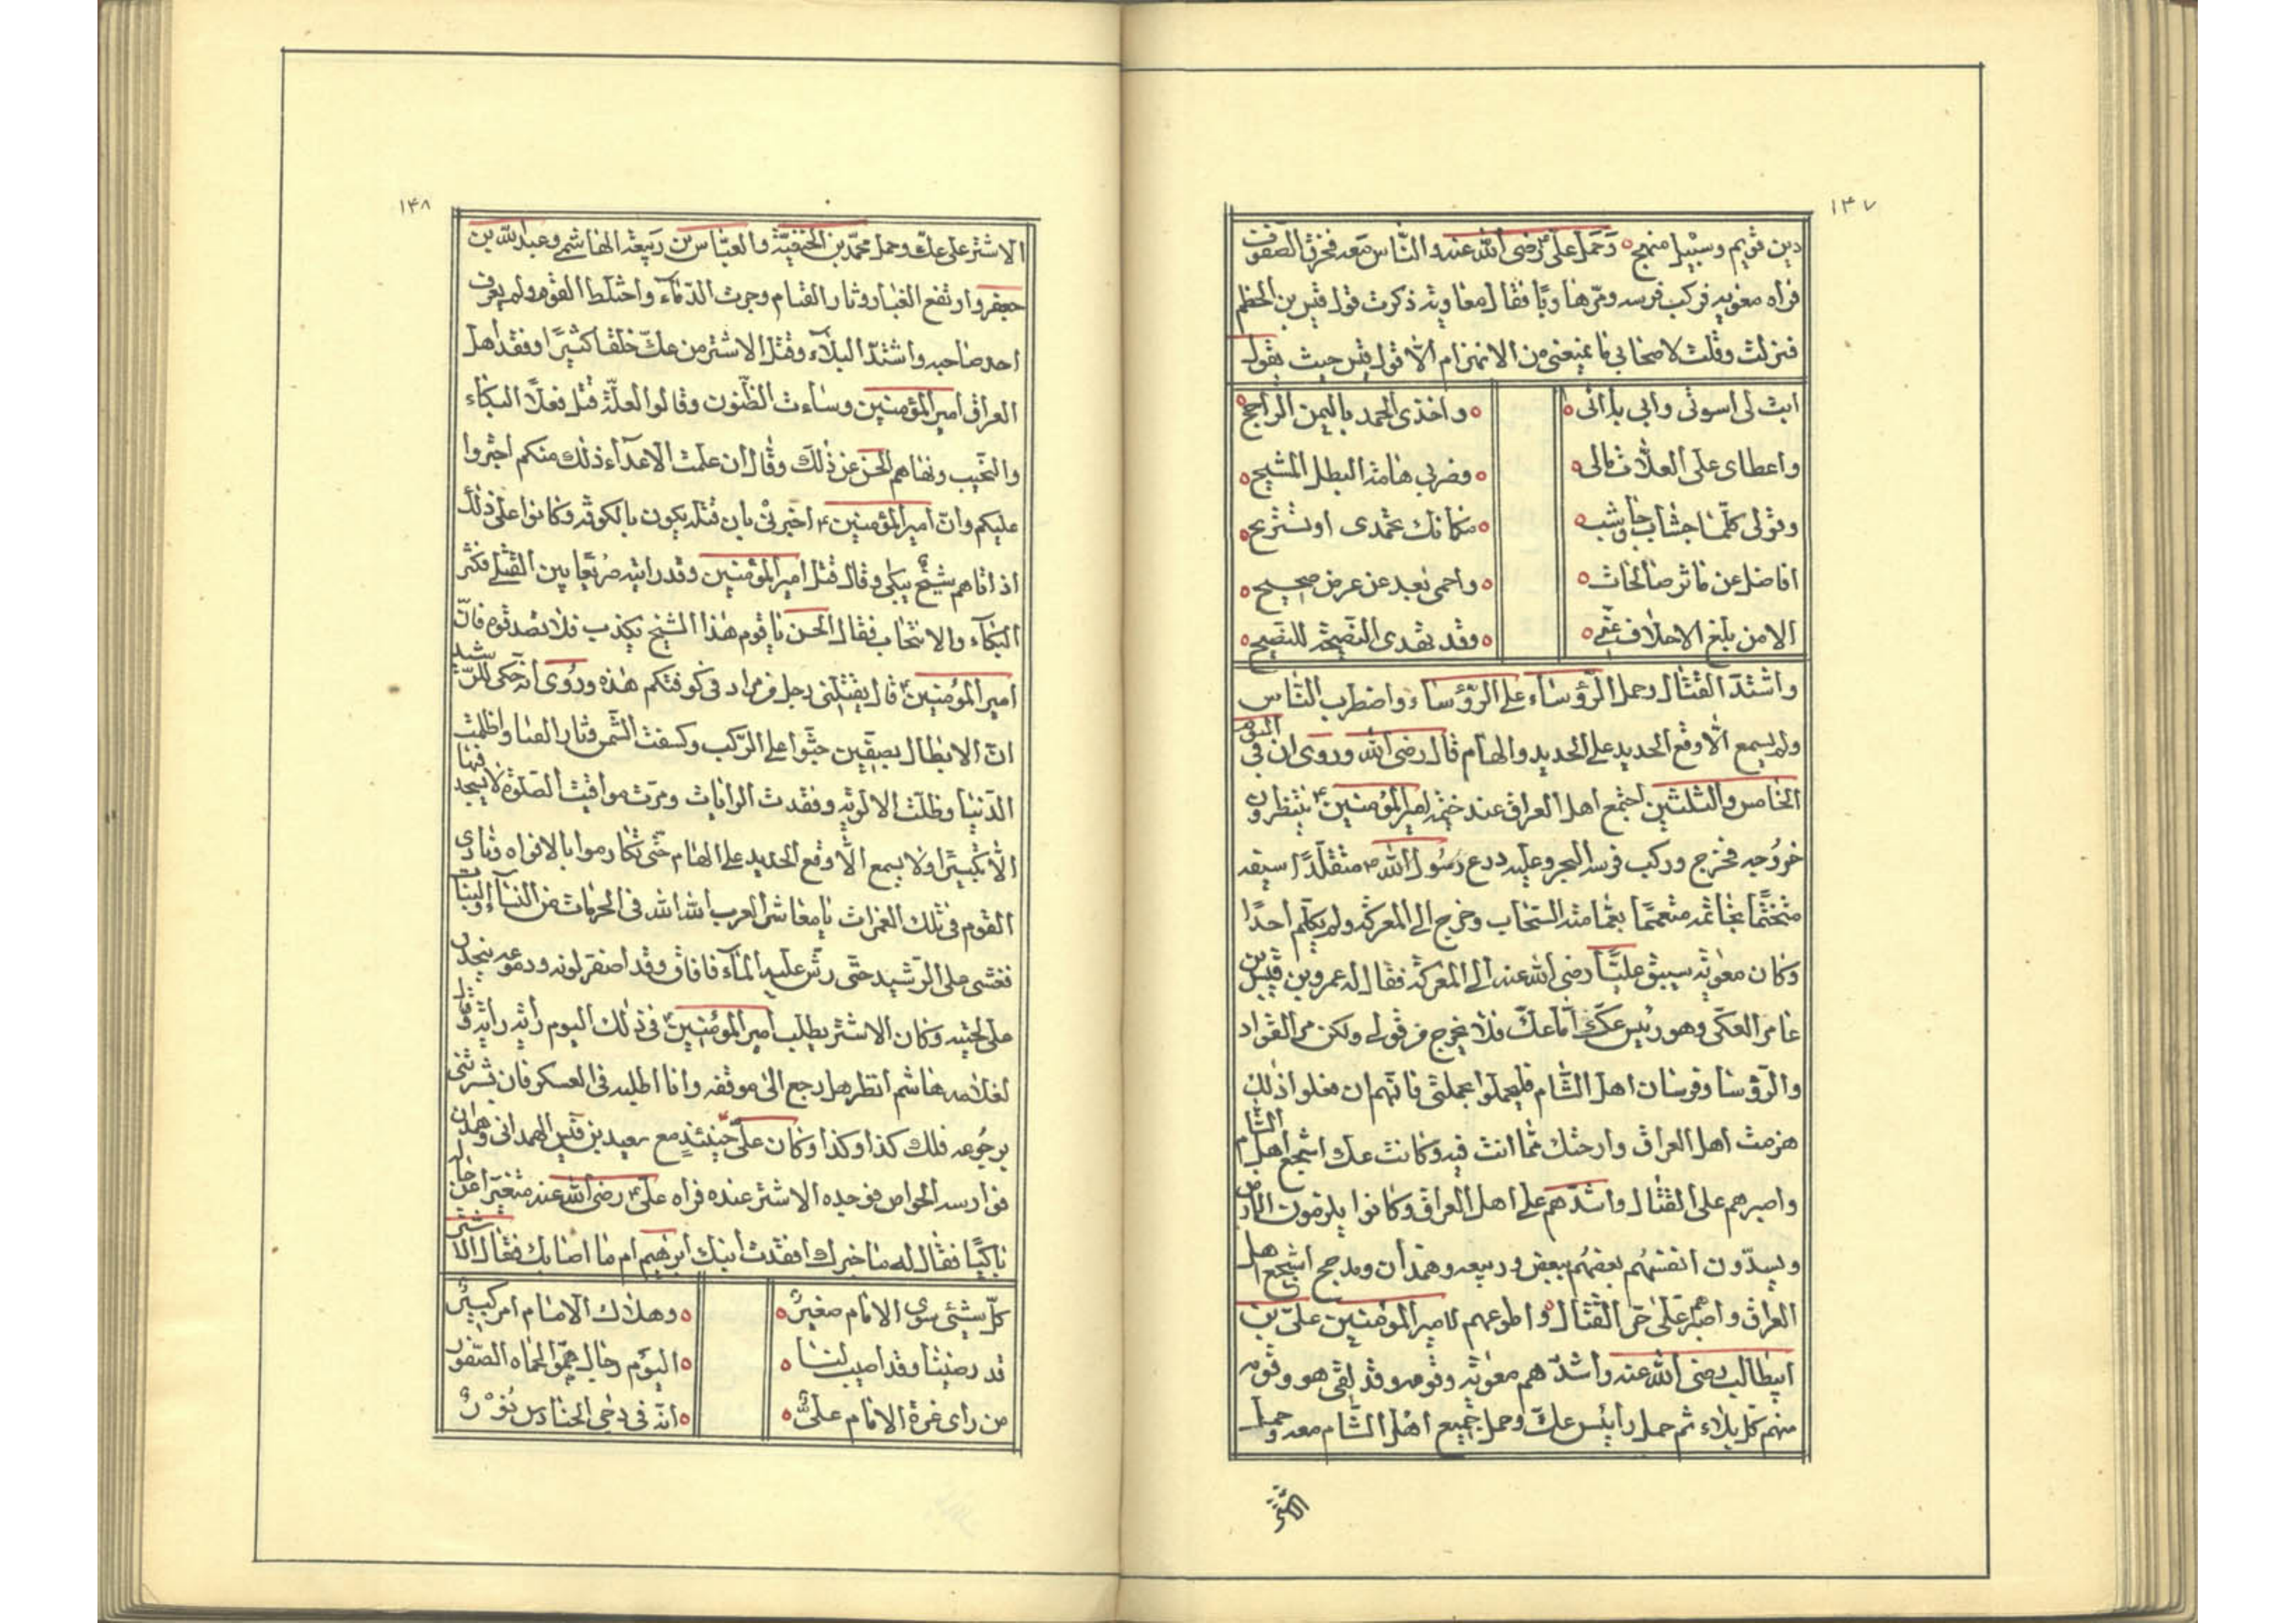 ١٤٧
دين قويم وسبيل منهج وحمل علي رضى الله عنه والناس معه فخرق الصفوف
فراه معويه فركب فرسه ومرّ هاربًا فقال معاويه ذكرت قول قيس بن الخطم
فنزلت وقلت لاصحابي ما يمنعني من الانهزام الّا قول قيس حيث يقول
ابت لى اسوتى وابى بلائى واخذى الحمد بالثمن الراجح
واعطاى على العلّات مالى وضربي هامة البطل المشيح
وقولى كلّما جشأت وجاشت مكانك تحمدى او تستريح
افاضل عن ماثر صالحات واحمى بعد عن عرض صحيح
الا من بلغ الاحلاف عنّي وقد تهدى النصيحة للنصيح
واشتدّ القتال وحمل الرّؤساء على الرّؤساء واضطرب النّاس
ولم يسمع الّا وقع الحديد على الحديد والهام قال رضى الله وروى ان فى اليوم
الخامس والثلثين اجتمع اهل العراق عند خيمة امير المؤمنين ينتظرون
خروجه فخرج وركب فرسه البحر وعليه درع رسول الله ص متقلّدًا سيفه
متختّمًا بخاتمه متعممًا بعمامته السّحاب وخرج الى المعركة ولم يكلّم احدًا
وكان معويه سيبق عليًّا رضى الله عنه الى المعركة فقال له عمرو بن قيس بن
عامر العكّى وهو رئيس عكّ امّا عكّ فلا يخرج من قولي ولكن مر القواد
والرّؤسا وفرسان اهل الشّام فليحملوا بحملتى فانّهم ان فعلوا ذلك
هزمت اهل العراق وارحتك ممّا انت فيه وكانت عك اشجع اهل الشام
واصبرهم على القتال واشدّهم على اهل العراق وكانوا يلزمون الارض
ويسدّون انفسهم بعضهم ببعض وربيعه وهمدان ومذحج اشجع اهل
العراق واصبرهم على حرّ القتال واطوعهم لامير المؤمنين علىّ بن
ابيطالب رضى الله عنه واشدّهم معويه وقومه وقد لقى هو وقومه
منهم كلّ بلاء ثم حمل رأيئس عكّ وحمل جميع اهل الشّام معه وحمل
الاشتر
١٤٨
الاشتر على عكّ وحمل محمّد بن الحنفيّة والعبّاس بن ربيعة الهاشمى وعبد الله بن
جعفر وارتفع الغبار وثار القتام وجرت الدّماء واختلط القوم ولم يعرف
احد صاحبه واشتدّ البلاء وقتل الاشتر من عكّ خلقا كثيرًا وفقد اهل
العراق امير المؤمنين وساءت الظّنون وقالوا لعلّه قتل فعلا البكاء
والنحيب ونهاهم الحسن عن ذلك وقال ان علمت الاعداء ذلك منكم اجتروا
عليكم وانّ امير المؤمنين ع اخبرنى بان قتله يكون بالكوفه وكانوا على ذلك
اذ اتاهم شيخ يبكى وقال قتل امير المؤمنين وقد رايته صريعًا بين القتلى فكثر
البكاء والانتحاب فقال الحسن يا قوم هذا الشيخ يكذب فلا تصدقوه فانّ
امير المؤمنين ع قال يقتلنى رجل من مراد فى كوفتكم هذه وروى انه حكى للرّشيد
انّ الابطال بصفّين جثوا على الرّكب وكسفت الشّمس وثار القتام واظلمت
الدّنيا وظلّت الالويه وفقدت الرايات ومرّت مواقيت الصّلوة لا يسجد فيها
الّا تكبيرًا ولا يسمع الّا وقع الحديد على الهام حتّى تكادموا بالافواه ونادى
القوم فى تلك الغمرات يا معاشر العرب الله الله فى الحرمات من النّساء والبنات
فغشى على الرّشيد حتّى رشّ عليه الماء فافاق وقد اصفر لونه ودموعه ينحدر
على لحيته وكان الاشتر يطلب امير المؤمنين ع فى ذلك اليوم راية راية وقال
لغلامه هاشم انظر هل رجع الى موقفه وانا اطلبه فى العسكر فان بشرتنى
برجوعه فلك كذا وكذا وكان علىّ حينئذٍ مع سعيد بن قيس الهمدانى وهمدان
فوارسه الخواص فوجده الاشتر عنده فراه على ع رضى الله عنه متغيّرا عن حاله
باكيًا فقال له ما خبرك افقدت ابنك ابرهيم ام ما اصابك فقال الاشتر
كلّ شيئى سوى الامام صغير وهلاك الامام امر كبير
قد رضينا وقد اصيب لنا اليوم رجال همّو الحماه الصّقور
من راى غرة الامام علىّ انّه فى دجى الحنادس نور